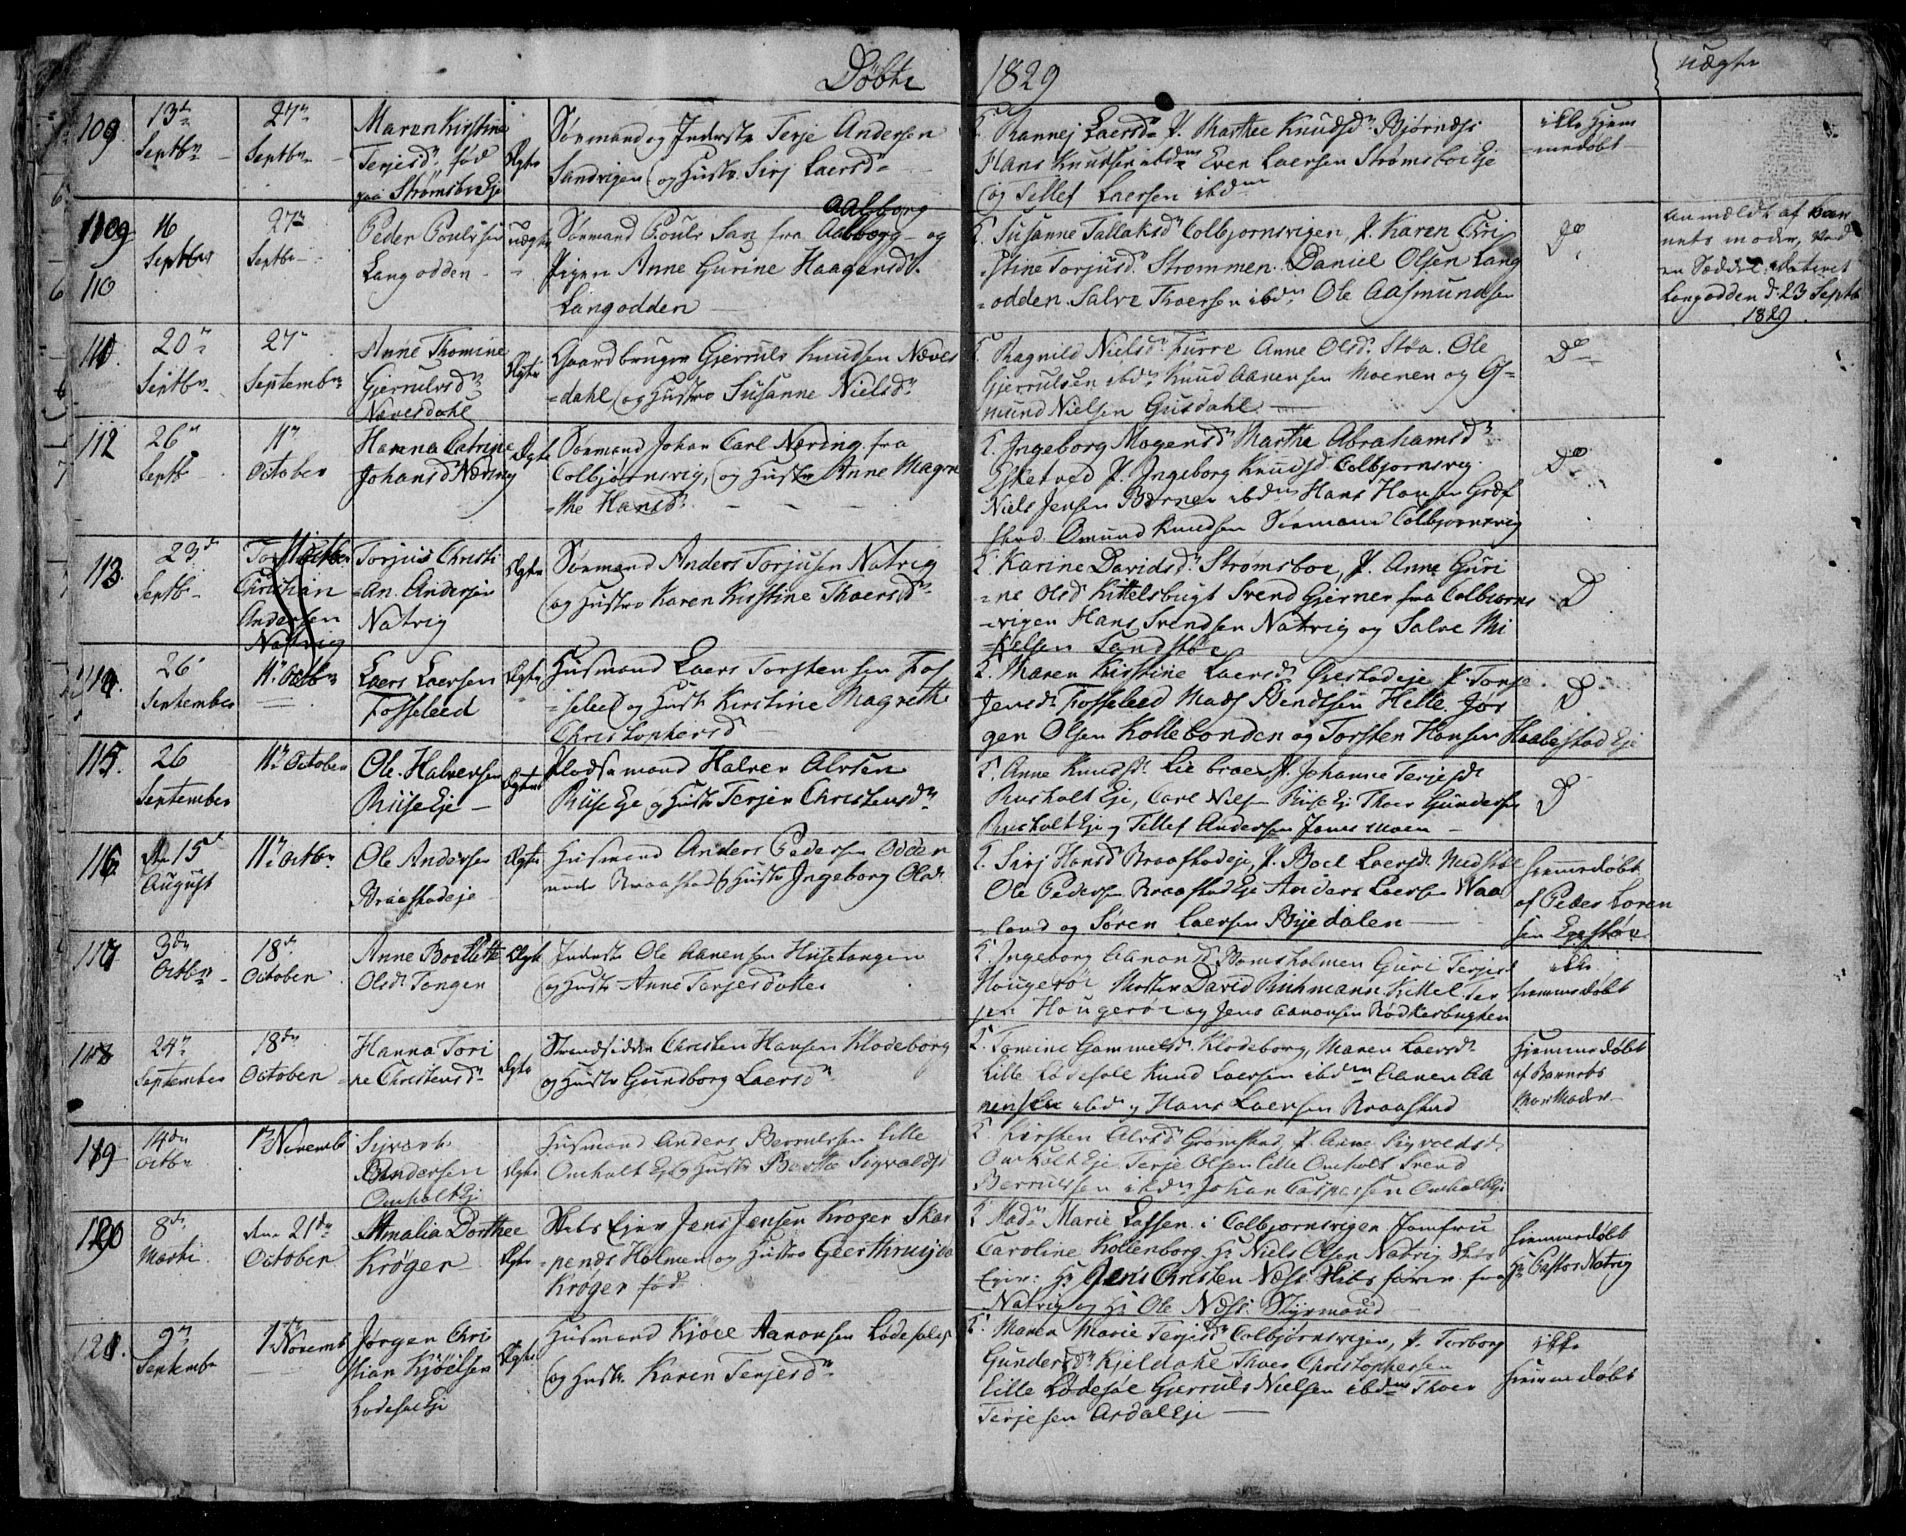 Døbte 1829
uægte
109. 13de Septbr 27de Septbr
Maren Kirstine
Terjesdr. fød
paa Strømsboe Eje
Ægte
Sømand og Inderst Terje Andersen
Sandvigen og Hustr. Sirj Laersdr
K. Rannej Laersdr P. Marthe Knudsdr
Hans Knudsen ibdm Even Laersen Strømsboe Eje
og Tellef Laersen ibdm
ikke hjem
medøbt
110 16 Septbr 27de Septbr
Peder Poulsen
Langodden
uægte
Aalborg
Sømand Pouls San fra Aalborg og
Pigen Anne Gurine Haagensdr.
Langodden
K. Susanne Tallaksdr Colbjornsvigen, P. Karen Chri
stine Torjusdr Strommen. Daniel Olsen Lang
odden. Salve Thoersen ibdm Ole Aasmundsen
Do
Anmældt af Bar
nets moder, ved
en Sæddel dateret
Langodden d. 23 Septb
1829.
20de Septbr 27de Septembr
Anne Thomine
Gjerrulvsdr
Nævesdahl
Ægte
Gaardbruger Gjerruls Knudsen Næves
dahl og Hustro Susanne Nielsdr
K. Ragnild Nielsdr Furre Anne Olsdr. Støa. Ole
Gjerrulsen ibdm Knud Aanensen Moenen og G
mund Nielsen Gusdahl
Do
112 26de Septb 11te October
Hanna Catrine
Johansdr Næring
Ægte
Sømand Johan Carl Næring fra
Colbjørnsvig, og Hustr Anne Magre
the Hansdr
K. Ingeborg Mogensdr Marthe Abrahamsdr
Esketved P. Ingeborg Knudsdr Colbjornsvig.
Niels Jensen Berner ibdm Hans Hansen Græf
stad. Omund Knudsen Sømand Colbjornsvig
Do
113. 23de Septbr
Christian
Andersen
Natvig
Torjus Christi
an. Andersen
Natvig
Ægte
Sømand Anders Torjusen Natvig
og Hustro Karen Kirstine Thoersdr
K. Karine Davidsdr Strømsboe, P. Anne Guri
ne Olsd Kittelsbugt Svend Gjerner fra Colbiorns
vigen Hans Svendsen Natvig og Salve Mi
kelsen Sandstøe
D
114. 26 September 11te Octbr
Laers Laersen
Fosseleed
Ægte
Husmand Laers Torstensen Fos
seleed og Hustr Kirstine Magrethe
Christophersdr
K. Maren Kirstine Laersdr Øvestadeje P. Torje
Jensdr Fosseleed Mads Bendtsen Helle. Jør
gen Olsen Kollebonden og Torsten Hansen Haabestad Eje
D
115. 26 September 11te October
Ole Halvorsen
Riise Eje
Ægte
Plads mand Halvor Alvsen
Riise Eje og Hustr Terjer Christensdr
K. Anne Knudsdr Lie broe P. Johanne Terjesdr
Rusholt Eje, Carl Nilsen Riise Eje Thoer Gundersen
Rusholt Eje og Tellef Andersen Jonsmoen
D
116 den 15de August 11te Octbr
Ole Andersen
Braastadeje
Ægte
Husmand Anders Pedersen Odden
unde Braastad og Hustr Ingeborg Olsdr
K. Sirj Hansdr Braastadeje, P. Boel Laersdr
Ole Pedersen Braastad Eje Anders Laersen Waa
land og Søren Laersen Bijedalen
hjemmedøbt
af Peder Loren
sen
117 3de Octbr 18de October
Anne
Olsdr Tangen
Ægte
Inderst Ole Aanensen Husetangen
og Hustr Anne Terjesdatter
K. Ingeborg Aanonsdr Bomsholmen Guri Terjesd
Hougerør David Rickmann Kittel Ter
jen Hougerør og Jens Aanonsen Rødkersbugten
ikke
hjemmedøbt
118 24de September 18de October
Hanna Tori
ne Christensdr
Ægte
Strandsidder Christen Hansen Klodeborg
og Hustr Gundborg Laersdr
K. Tomine Gammelsdr Klodeborg, Maren Laersdr
Lille Lødesøl Knud Laersen ibdm Aanen Aa
nensen ibdm og Hans Laersen Braastad
Hjemmedøbt
af Barnets
Mor Moder
119 14de Octbr 1te Novemb
Syvert
Andersen
Omholt Ej
Ægte
Husmand Anders Berrulsen Lille
Omholt Ej og Hustr Berthe Sigvaldsd
K. Kirsten Alvsdr Grømstad, P. Anne Sigvoldsdr
Omholt Eje Terje Olsen Lille Omholt Svend
Berrulsen ibdm Johan Caspersen Omholt Eje
120 8de Martii den 21de October
Amalia Dorthee
Krøger
Ægte
Skibs Ejer Jens Jensen Krøger Skar
pends Holmen og Hustro Geerthrue
Krøger fød
K. Mad. Marie Lassen i Colbjornsvigen Jomfru
Caroline Kollenborg. Hr Niels Olsen Natvig Skibs
Ejer: Hr Jens Christen Næss Skibsfører fra
Natvig og Hr Ole Næss Styrmand
hjemmedøbt
Hr Pastor Natvig
121. 9de Septembr 1te Novemb
Jørgen Chris
tian Kjøelsen
Lødesøl Eje
Ægte
Husmand Kjøel Aanonsen Lødesøleje
og Hustr. Karen Terjesdr
K. Maren Marie Terjesdr Colbjørnsvigen, P. Torborg
Gundersdr Kjeldahl Thoer Christophersen
Lille Lødesøe Gjerruls Nielsen ibdm Thoer
Terjesen Asdal Eje
ikke
hjemmedøbt